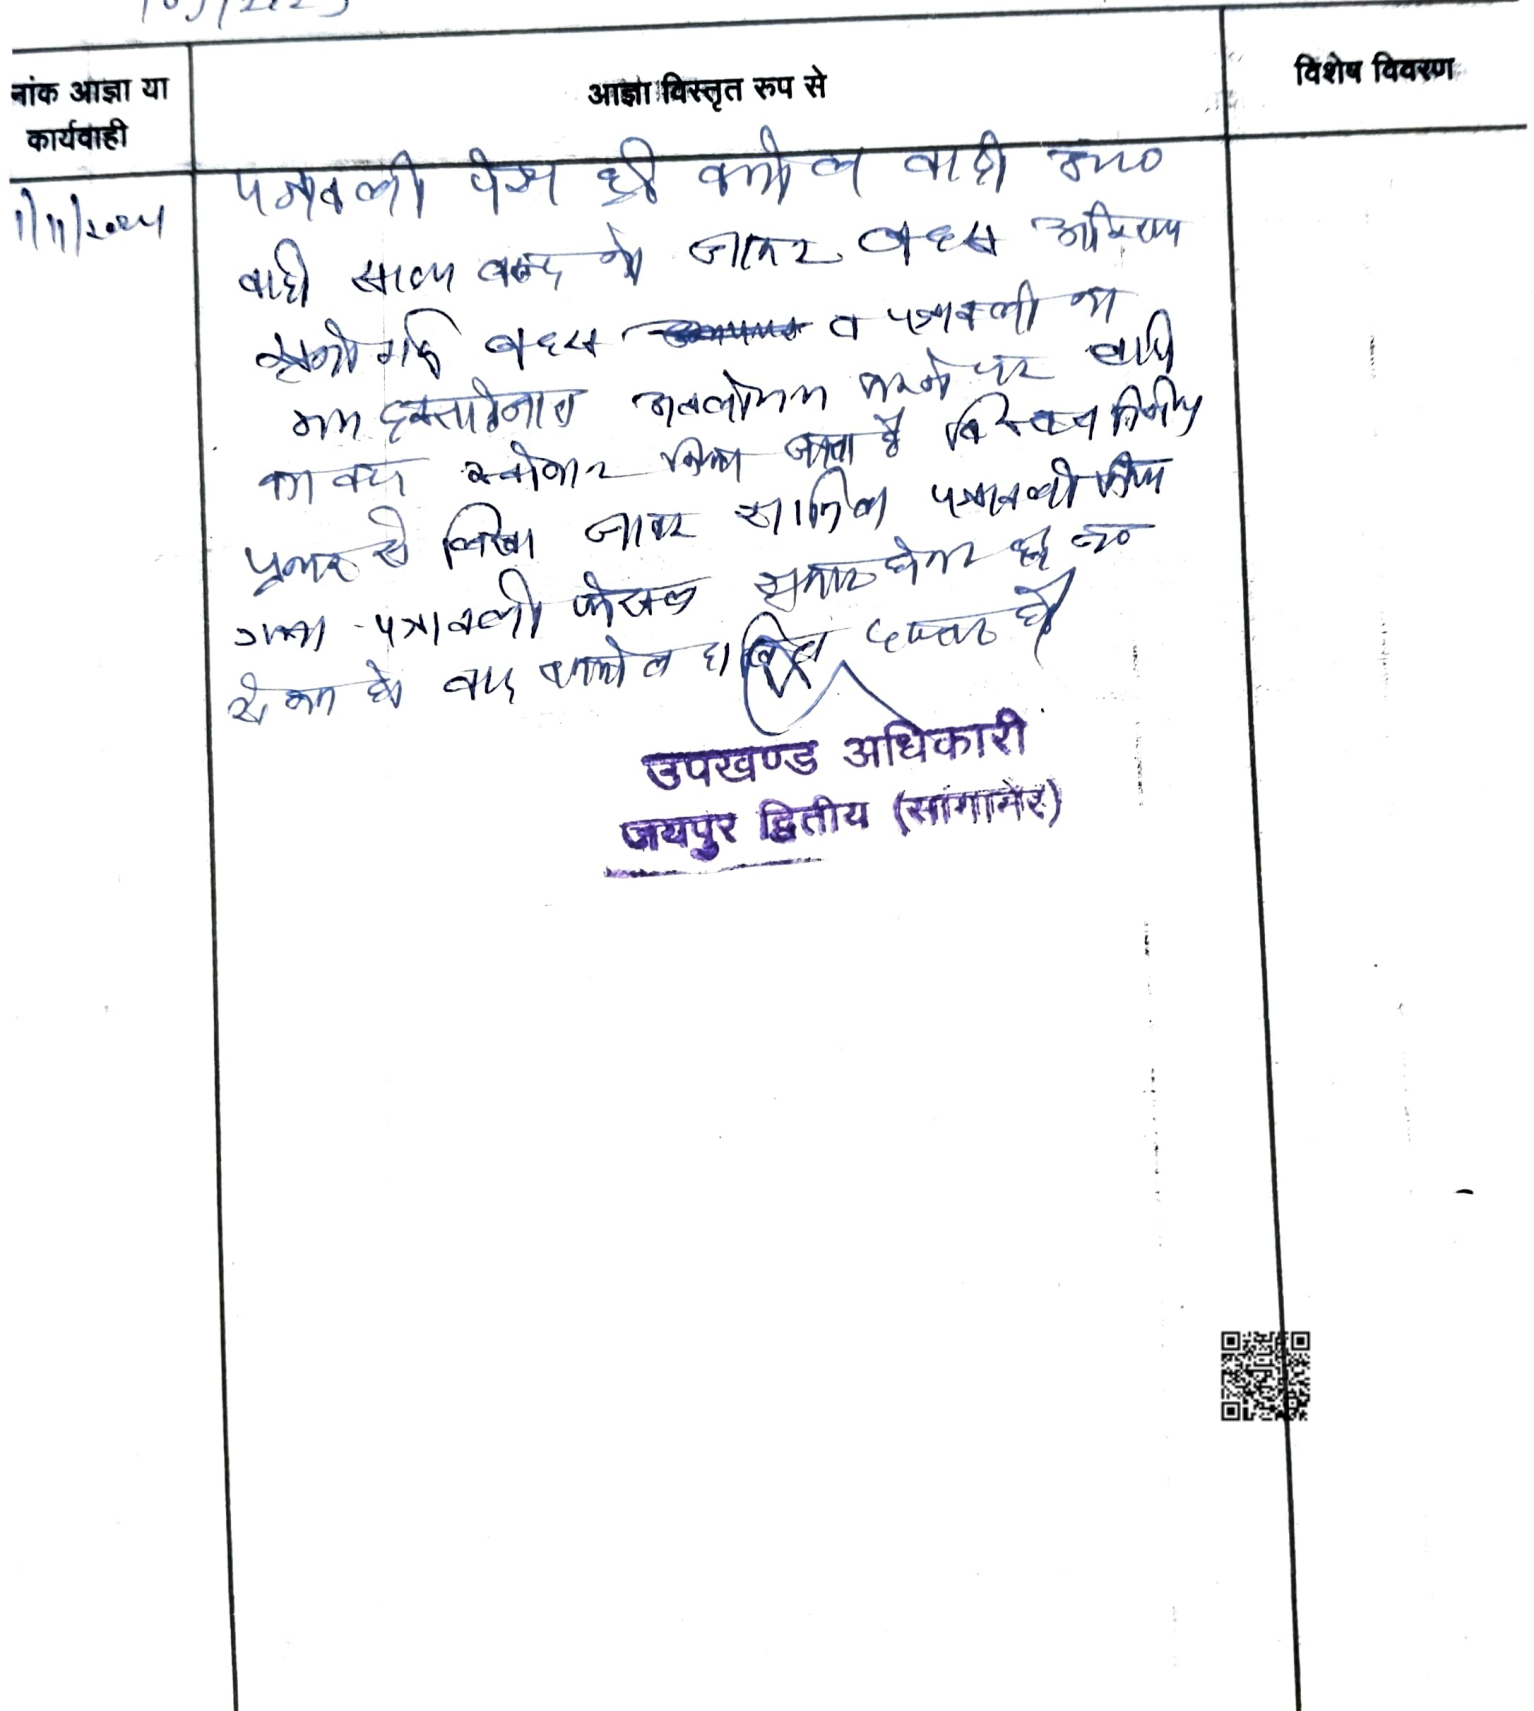 नांक आज्ञा या
कार्यवाही
आज्ञा विस्तृत रुप से
विशेष विवरण
पत्रावली पेश हुई वकील वादी उप०
वादी साक्ष्य बन्द की जाकर बहस अन्तिम
सुनी गई बहस व पत्रावली का
दस्तावेजात अवलोकन करने पर वादी
का वाद स्वीकार किया जाता है विस्तृत निर्णय
से लिखा जाकर शामिल पत्रावली किया
गया पत्रावली फैसल शुमार होकर
से कम हो बाद दाखिल दफ्तर हो
उपखण्ड अधिकारी
जयपुर द्वितीय (सांगानेर)